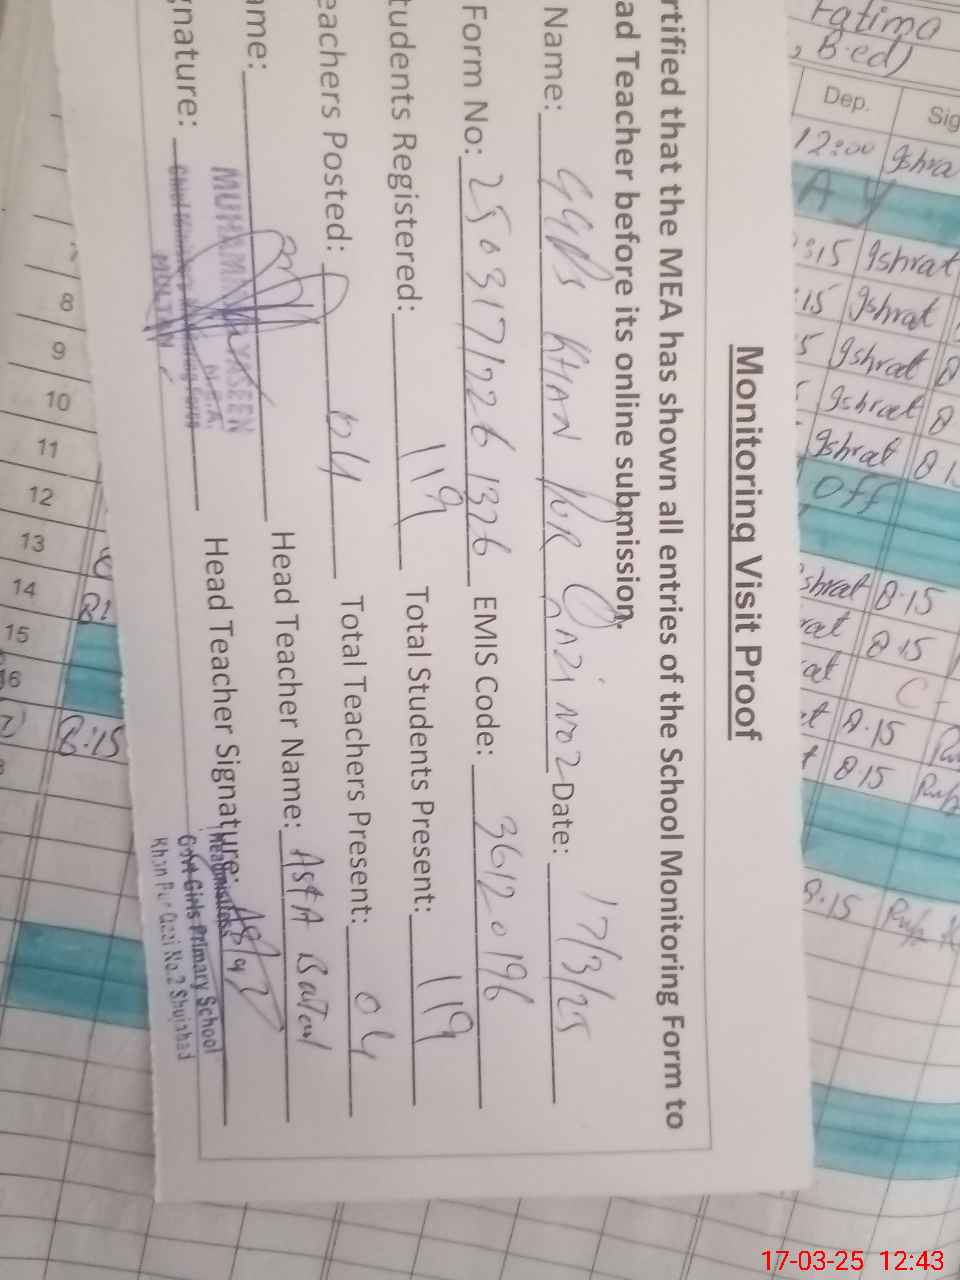 Monitoring Visit Proof
rtified that the MEA has shown all entries of the School Monitoring Form to
ad Teacher before its online submission.
Name: GGPS KHAN PUR QAZI NO2 Date: 17/3/25
Form No: 25031712261326 EMIS Code: 36120196
tudents Registered: 119 Total Students Present: 119
eachers Posted: 04 Total Teachers Present: 04
ame: Head Teacher Name:
gnature: Head Teacher Signature:
MUHAMMAD YASEEN
MULTAN
Headmistress
Govt Girls Primary School
Khan Pur Qazi No.2 Shujabad
Fatima
B.ed)
Dep. Sig
12:00 Ishra
:15 Ishrat
:15 Ishrat
5 Ishrat 8
Ishrat 8
Ishrat 8
Off
shrat 8.15
rat 8.15
at C
t 8.15
t 8.15
8.15
8
9
10
11
12
13
14
15
6
8:15
17-03-25 12:43